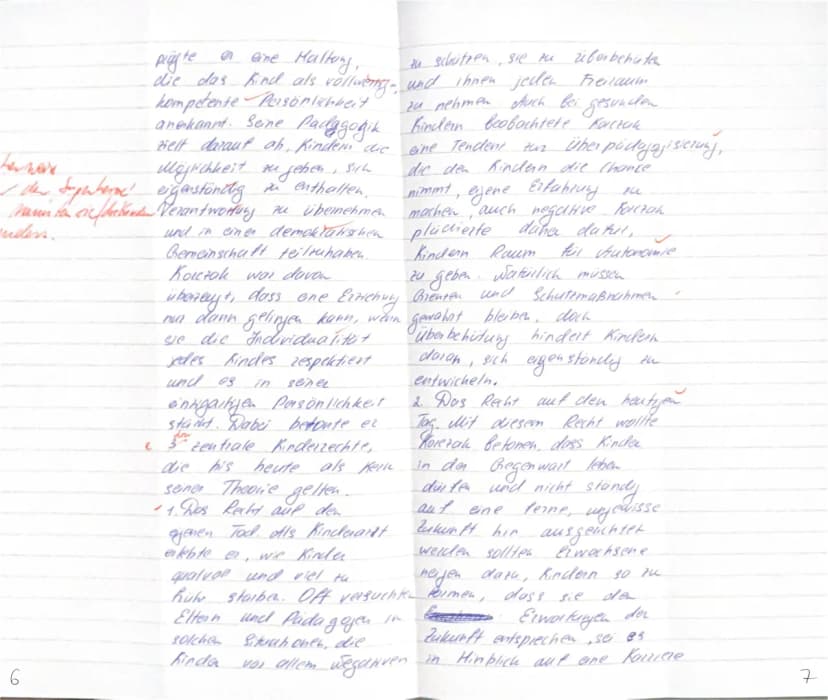 prägte er eine Haltung,
die das Kind als vollwertige,
kompetente Persönlichkeit
anerkannt. Seine Pädagogik
zielt darauf ab, Kindern die
Möglichkeit zu geben, sich
eigenständig zu enthalten.
Verantwortung zu übernehmen
und in einer demokratischen
Gemeinschaft teilzuhaben.
Korczak war davon
überzeugt, dass eine Erziehung
nur dann gelingen kann, wenn
sie die Individualität
jedes Kindes respektiert
und es in seiner
einzigartigen Persönlichkeit
stärkt. Dabei betonte er
3 zentrale Kinderrechte,
die bis heute als Kern
seiner Theorie gelten.
1. Das Recht auf den
eigenen Tod. Als Kinderarzt
erlebte er, wie Kinder
qualvoll und viel zu
fruhr starben. Oft versuchten
Eltern und Pädagogen in
solchen Situationen, die
Kinder vor allem Negativen
6
zu schützen, sie zu überbehüten
und ihnen jeden Freiraum
zu nehmen. Auch bei gesunden
Kindern beobachtete Korczak
eine Tendenz zur Überpädagogisierung,
die den Kindern die Chance
nimmt, eigene Erfahrung zu
machen, auch negative. Korczak
plädierte daher dafür,
Kindern Raum für Autonomie
zu geben. Natürlich müssen
Grenzen und Schutzmaßnahmen
gewahrt bleiben, doch
Überbehütung hindert Kindern
daran, sich eigenständig zu
entwickeln.
2. Das Recht auf den heutigen
Tag. Mit diesem Recht wollte
Korczak betonen, dass Kinder
in der Gegenwart leben
dürfen und nicht ständig
auf eine ferne, ungewisse
Zukunft hin ausgerichtet
werden sollten. Erwachsene
neigen dazu, Kindern so zu
formen, dass sie den
Erwartungen der
Zukunft entsprechen, sei es
in Hinblick auf eine Karriere
7